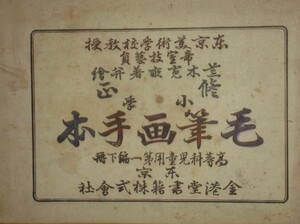 東京美術學校教授
帝室技藝員
荒木寛畝著并繪
修正
小學
毛筆画手本
高等科児童用第一編下冊
東京
金港堂書籍株式會社